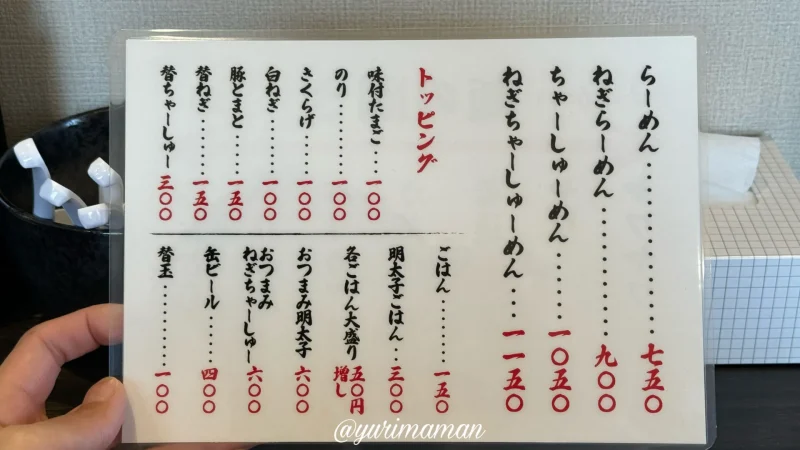 らーめん‥‥‥‥‥‥七五〇
ねぎらーめん‥‥‥‥九〇〇
ちゃーしゅーめん‥‥一〇五〇
ねぎちゃーしゅーめん‥‥一一五〇
トッピング
味付たまご‥一〇〇
のり‥‥‥‥一〇〇
きくらげ‥‥一〇〇
白ねぎ‥‥‥一〇〇
豚とまと‥‥一五〇
替ねぎ‥‥‥一五〇
替ちゃーしゅー三〇〇
ごはん‥‥‥‥一五〇
明太子ごはん‥三〇〇
各ごはん大盛り五〇円増し
おつまみ明太子 六〇〇
おつまみ
ねぎちゃーしゅー六〇〇
缶ビール‥‥‥四〇〇
替玉‥‥‥‥‥一〇〇
@yurimaman